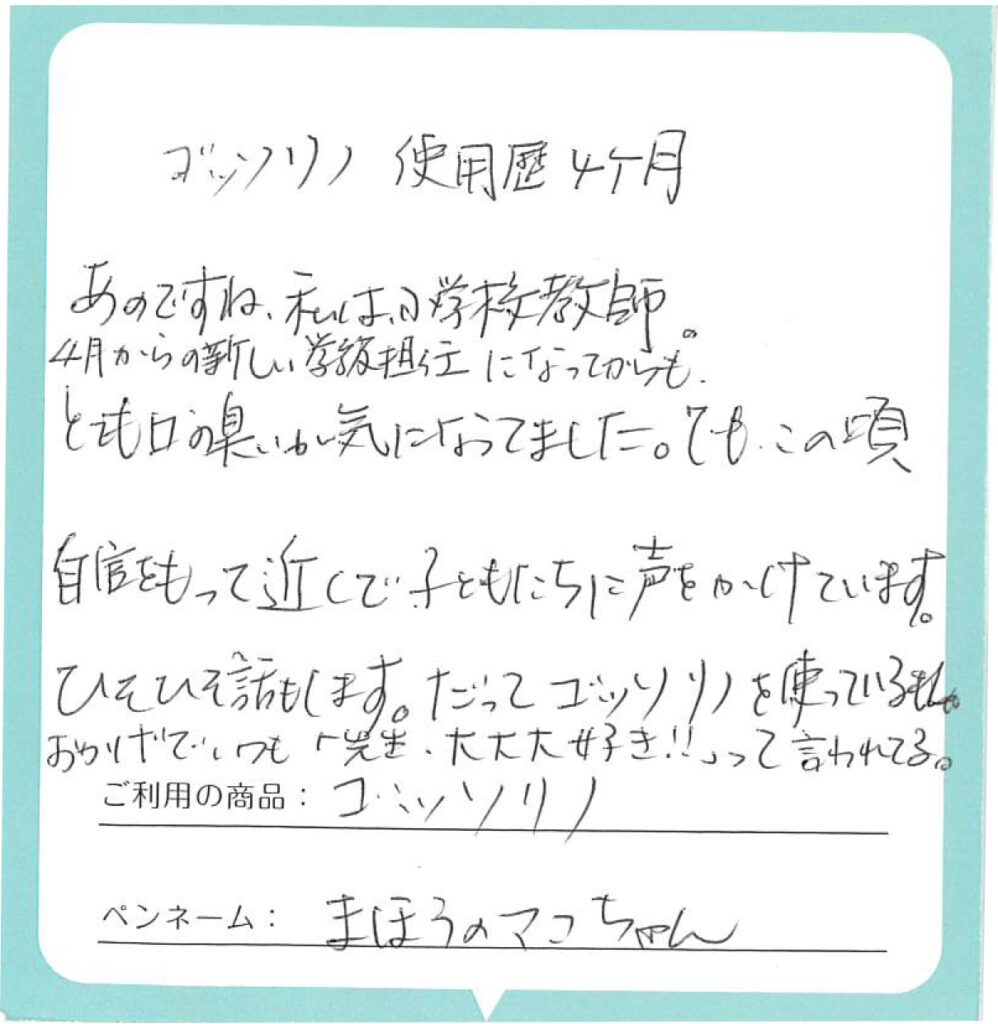 ゴッソリノ 使用歴4ケ月
あのですね、私は、小学校教師。
4月からの新しい学級担任になってからも、
とても口の臭いが気になってました。でも、この頃
自信をもって近くで子どもたちに声をかけています。
ひそひそ話もします。だってゴッソリノを使っているもん。
おかげでいつも「先生、大大大好き!!」って言われてる。
ご利用の商品：ゴッソリノ
ペンネーム：まほうのマコちゃん